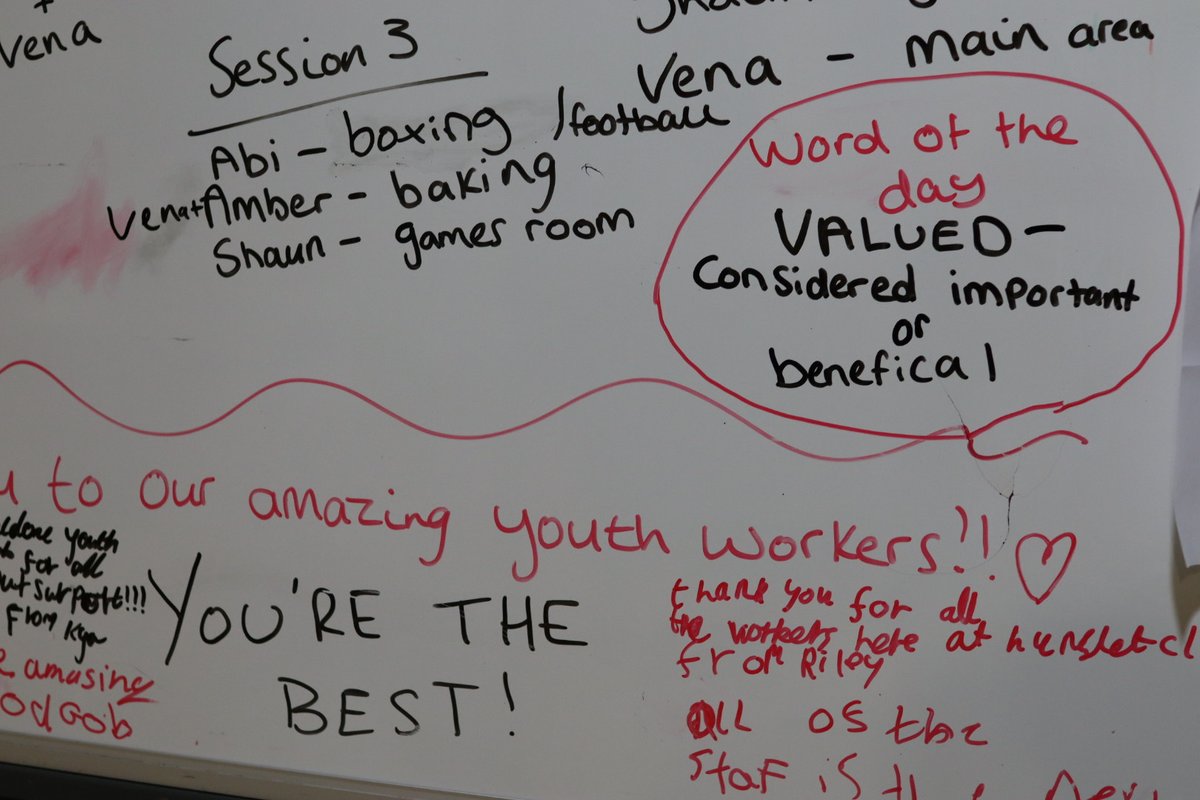 +
vena
Session 3
Abi - boxing /football
Vena+Amber - baking
Shaun - games room
Vena - main area
Word of the
day
VALUED -
Considered important
or
benefical
to our amazing youth workers!!
youth
for all
surport!!!
From Kya
YOU'RE THE
BEST!
amasing
thank you for all
the workers here at hunslet cl
from Riley
all os the
staf is the